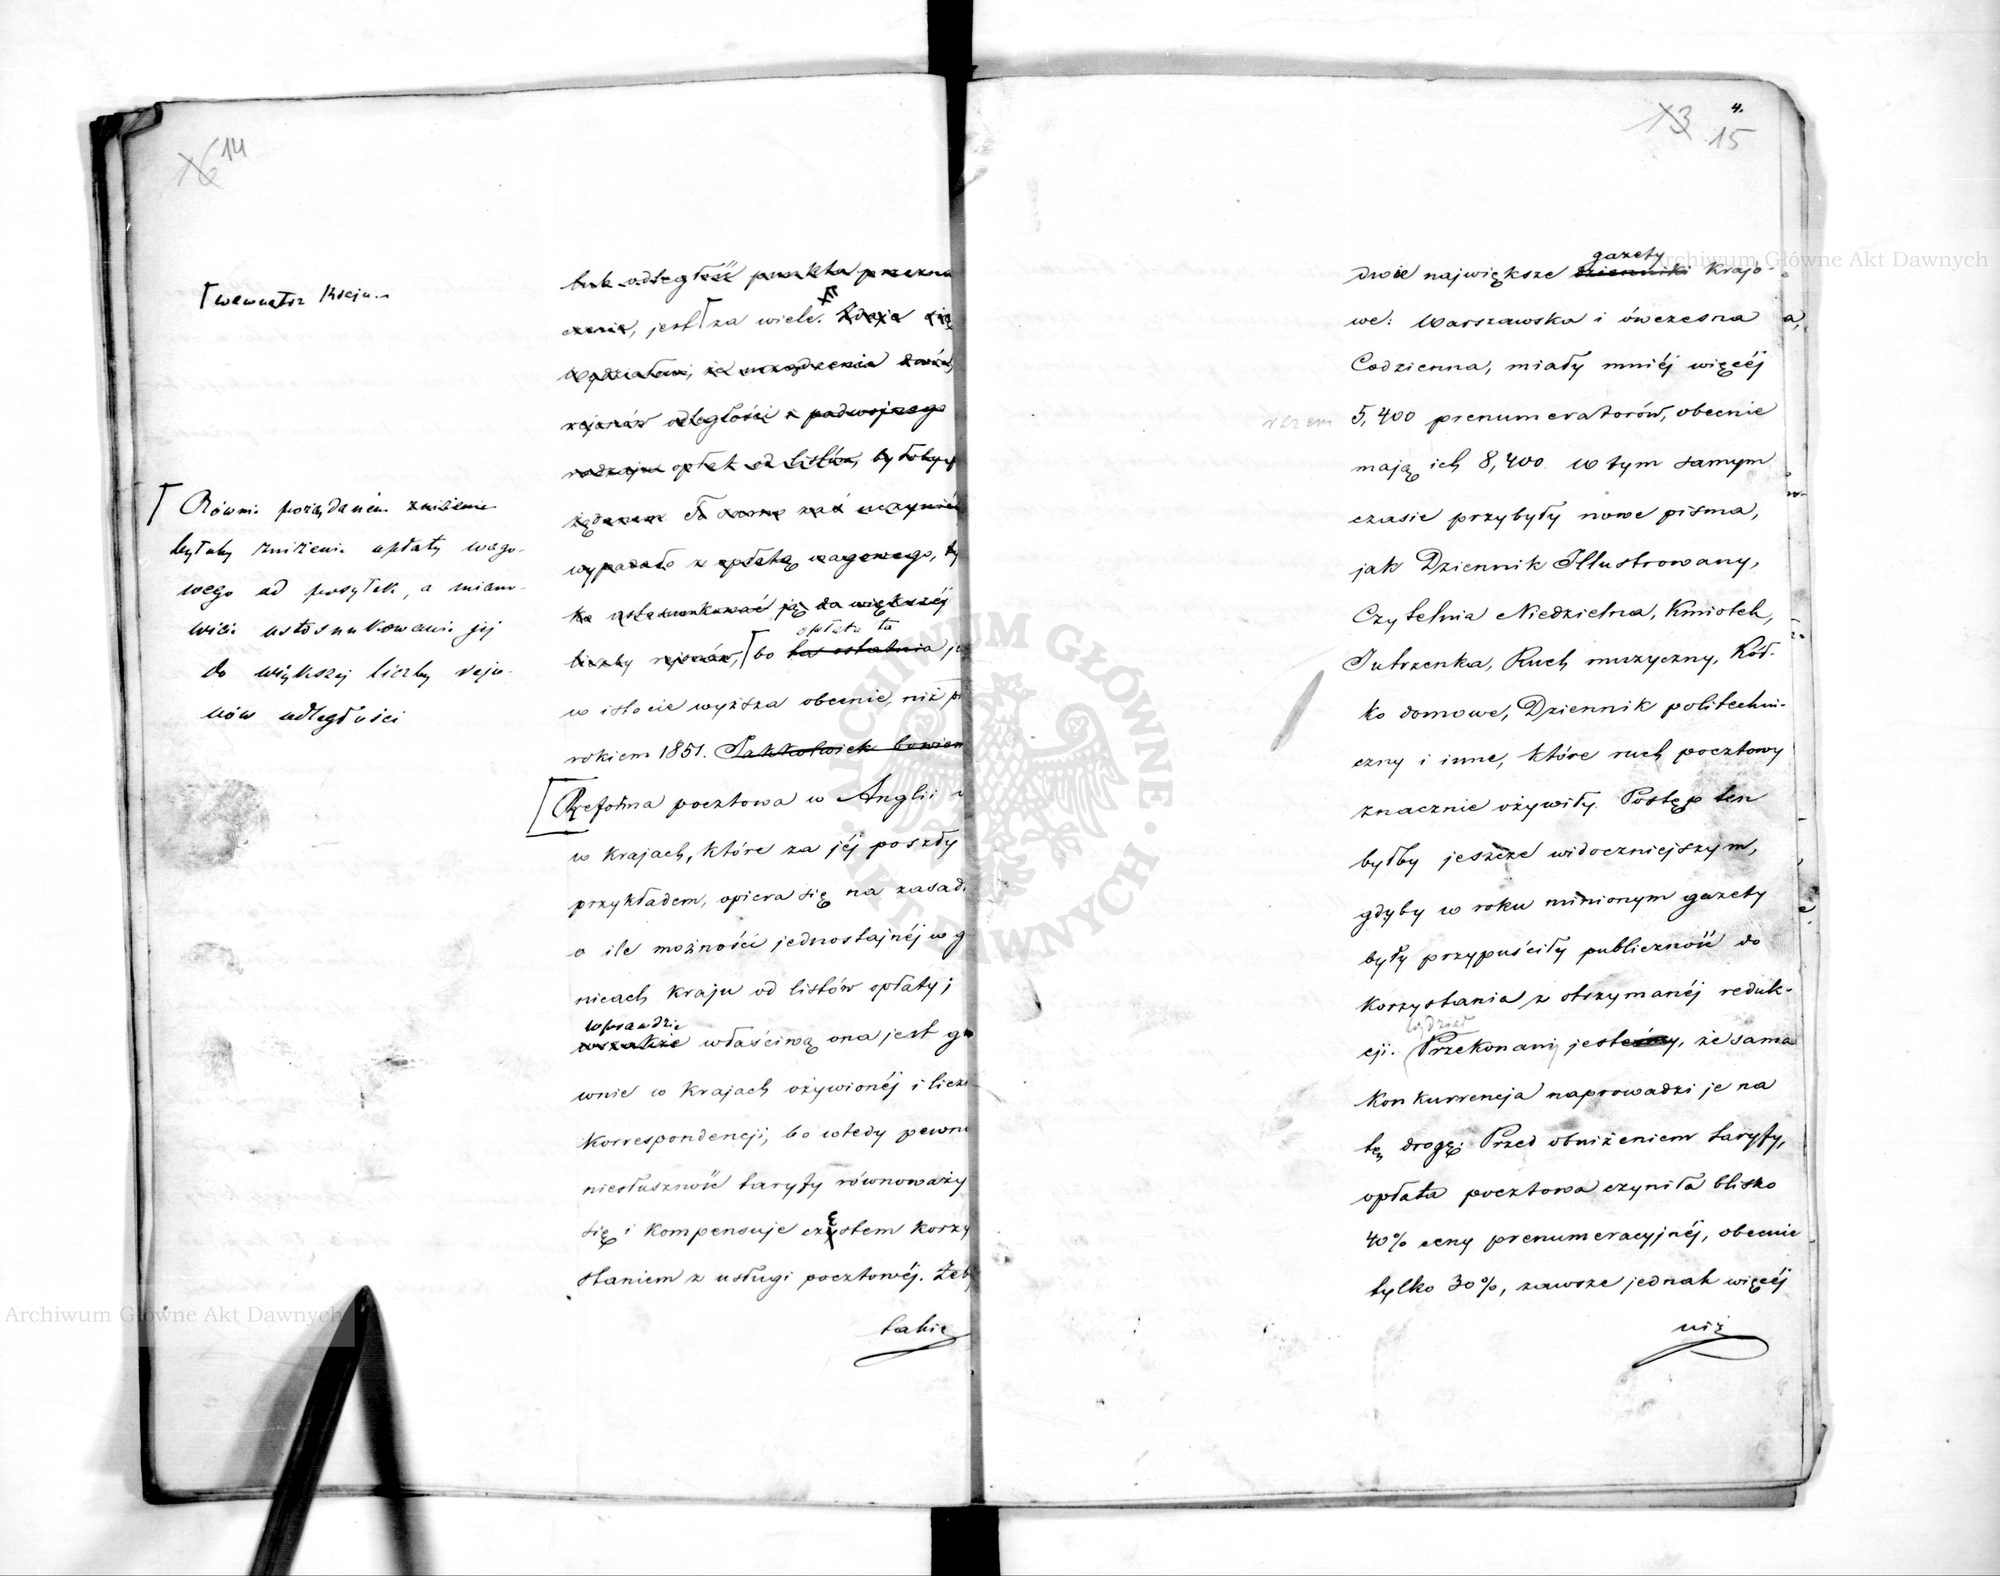 14
wewnątrz kraju
Równie pożądaném
byłoby zniżenie opłaty wago-
wego od posyłek, a miano-
wicie ustosunkowanie jej
do większej liczby rejo-
nów odległości
buk odległość punkta przezna
czenia, jest za wiele. Zdaje się
rejonów odległości i podwójnego
rodzaju opłat od listów, byłoby
żądanem
wypadało z opłatą wagowego, ty
ko ustosunkować ją do większéj
opłata ta
liczby rejonów, bo ta ostatnia je
w istocie wyższa obecnie, niż pr
rokiem 1851. Jakkolwiek bowiem
Reforma pocztowa w Anglii
w krajach, które za jéj poszły
przykładem, opiera się na zasad
o ile możności jednostajnéj w g
nicach kraju od listów opłaty;
wprawdzie
wszakże właściwą ona jest gó
wnie w krajach ożywionéj i licz
korrespondencji, bo wtedy pewn
niesłuszność taryfy równoważy
się i kompensuje częstem korzy
staniem z usługi pocztowéj. Żeb
takie
13 4.
15
gazety
dwie największe dzienniki krajo-
we: Warszawska i ówczesna
Codzienna, miały mniéj więcéj
razem 5,400 prenumeratorów, obecnie
mają ich 8,400. w tym samym
czasie przybyły nowe pisma,
jak Dziennik Illustrowany,
Czytelnia Niedzielna, Kmiotek,
Jutrzenka, Ruch muzyczny, Kół-
ko domowe, Dziennik politechni-
czny i inne, które ruch pocztowy
znacznie ożywiły. Postęp ten
byłby jeszcze widoczniejszym,
gdyby w roku minionym gazety
były przypuściły publiczność do
korzystania z otrzymanéj reduk-
cji. Przekonani jesteśmy, że sama
konkurrencja naprowadzi je na
tę drogę. Przed obniżeniem taryfy,
opłata pocztowa czyniła blisko
40% ceny prenumeracyjnéj, obecnie
tylko 30%, zawsze jednak więcéj
niż
Archiwum Główne Akt Dawnych
Archiwum Główne Akt Dawnych
ARCHIWUM GŁÓWNE AKT DAWNYCH